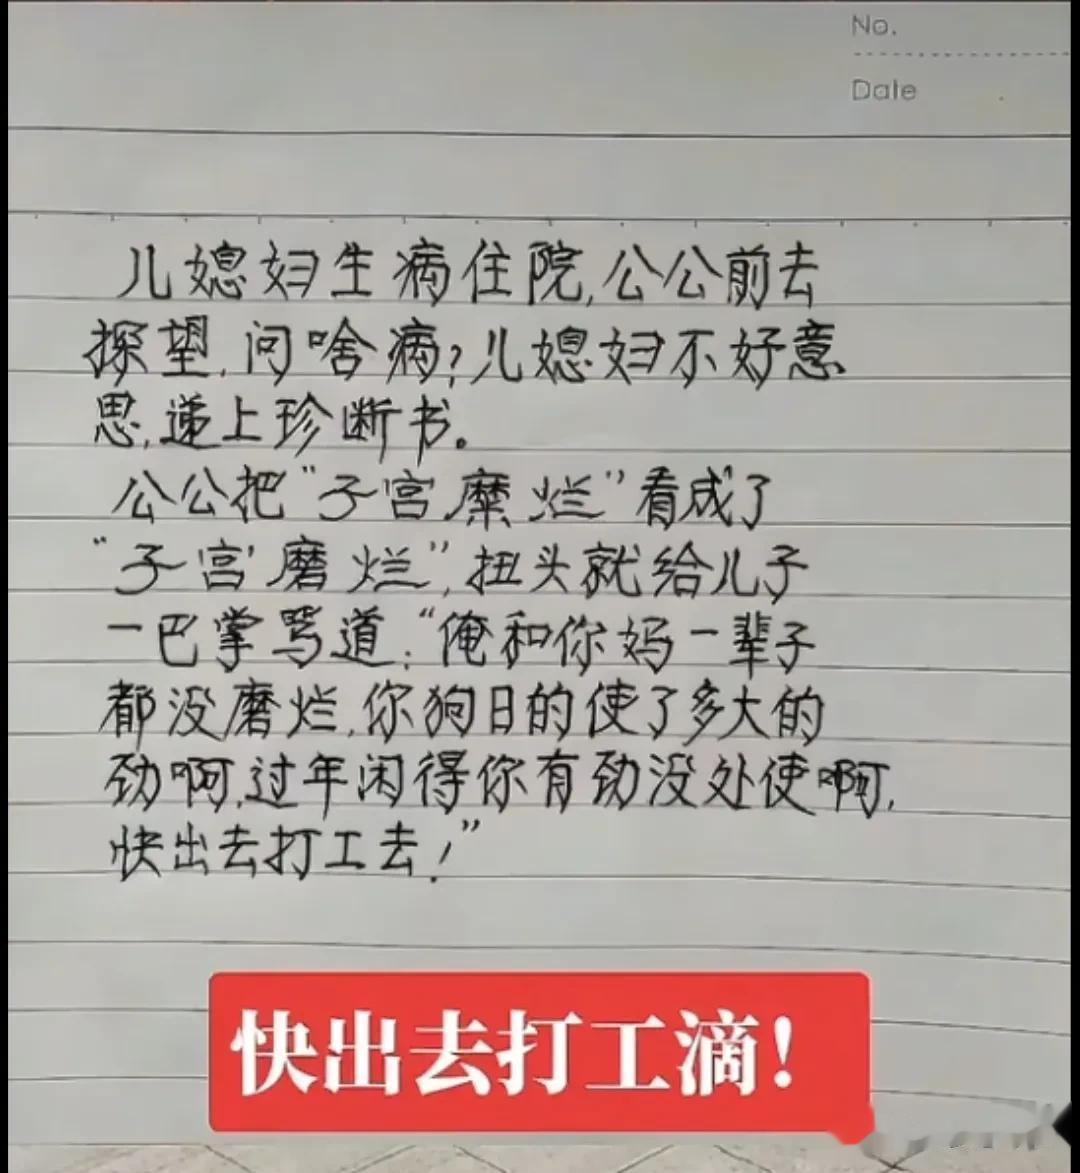 No.
Date
儿媳妇生病住院,公公前去
探望,问啥病?儿媳妇不好意
思,递上珍断书。
公公把“子宫糜烂”看成了
“子宫磨烂”,扭头就给儿子
一巴掌骂道:“俺和你妈一辈子
都没磨烂,你狗日的使了多大的
劲啊,过年闲得你有劲没处使啊,
快出去打工去!”
快出去打工滴!